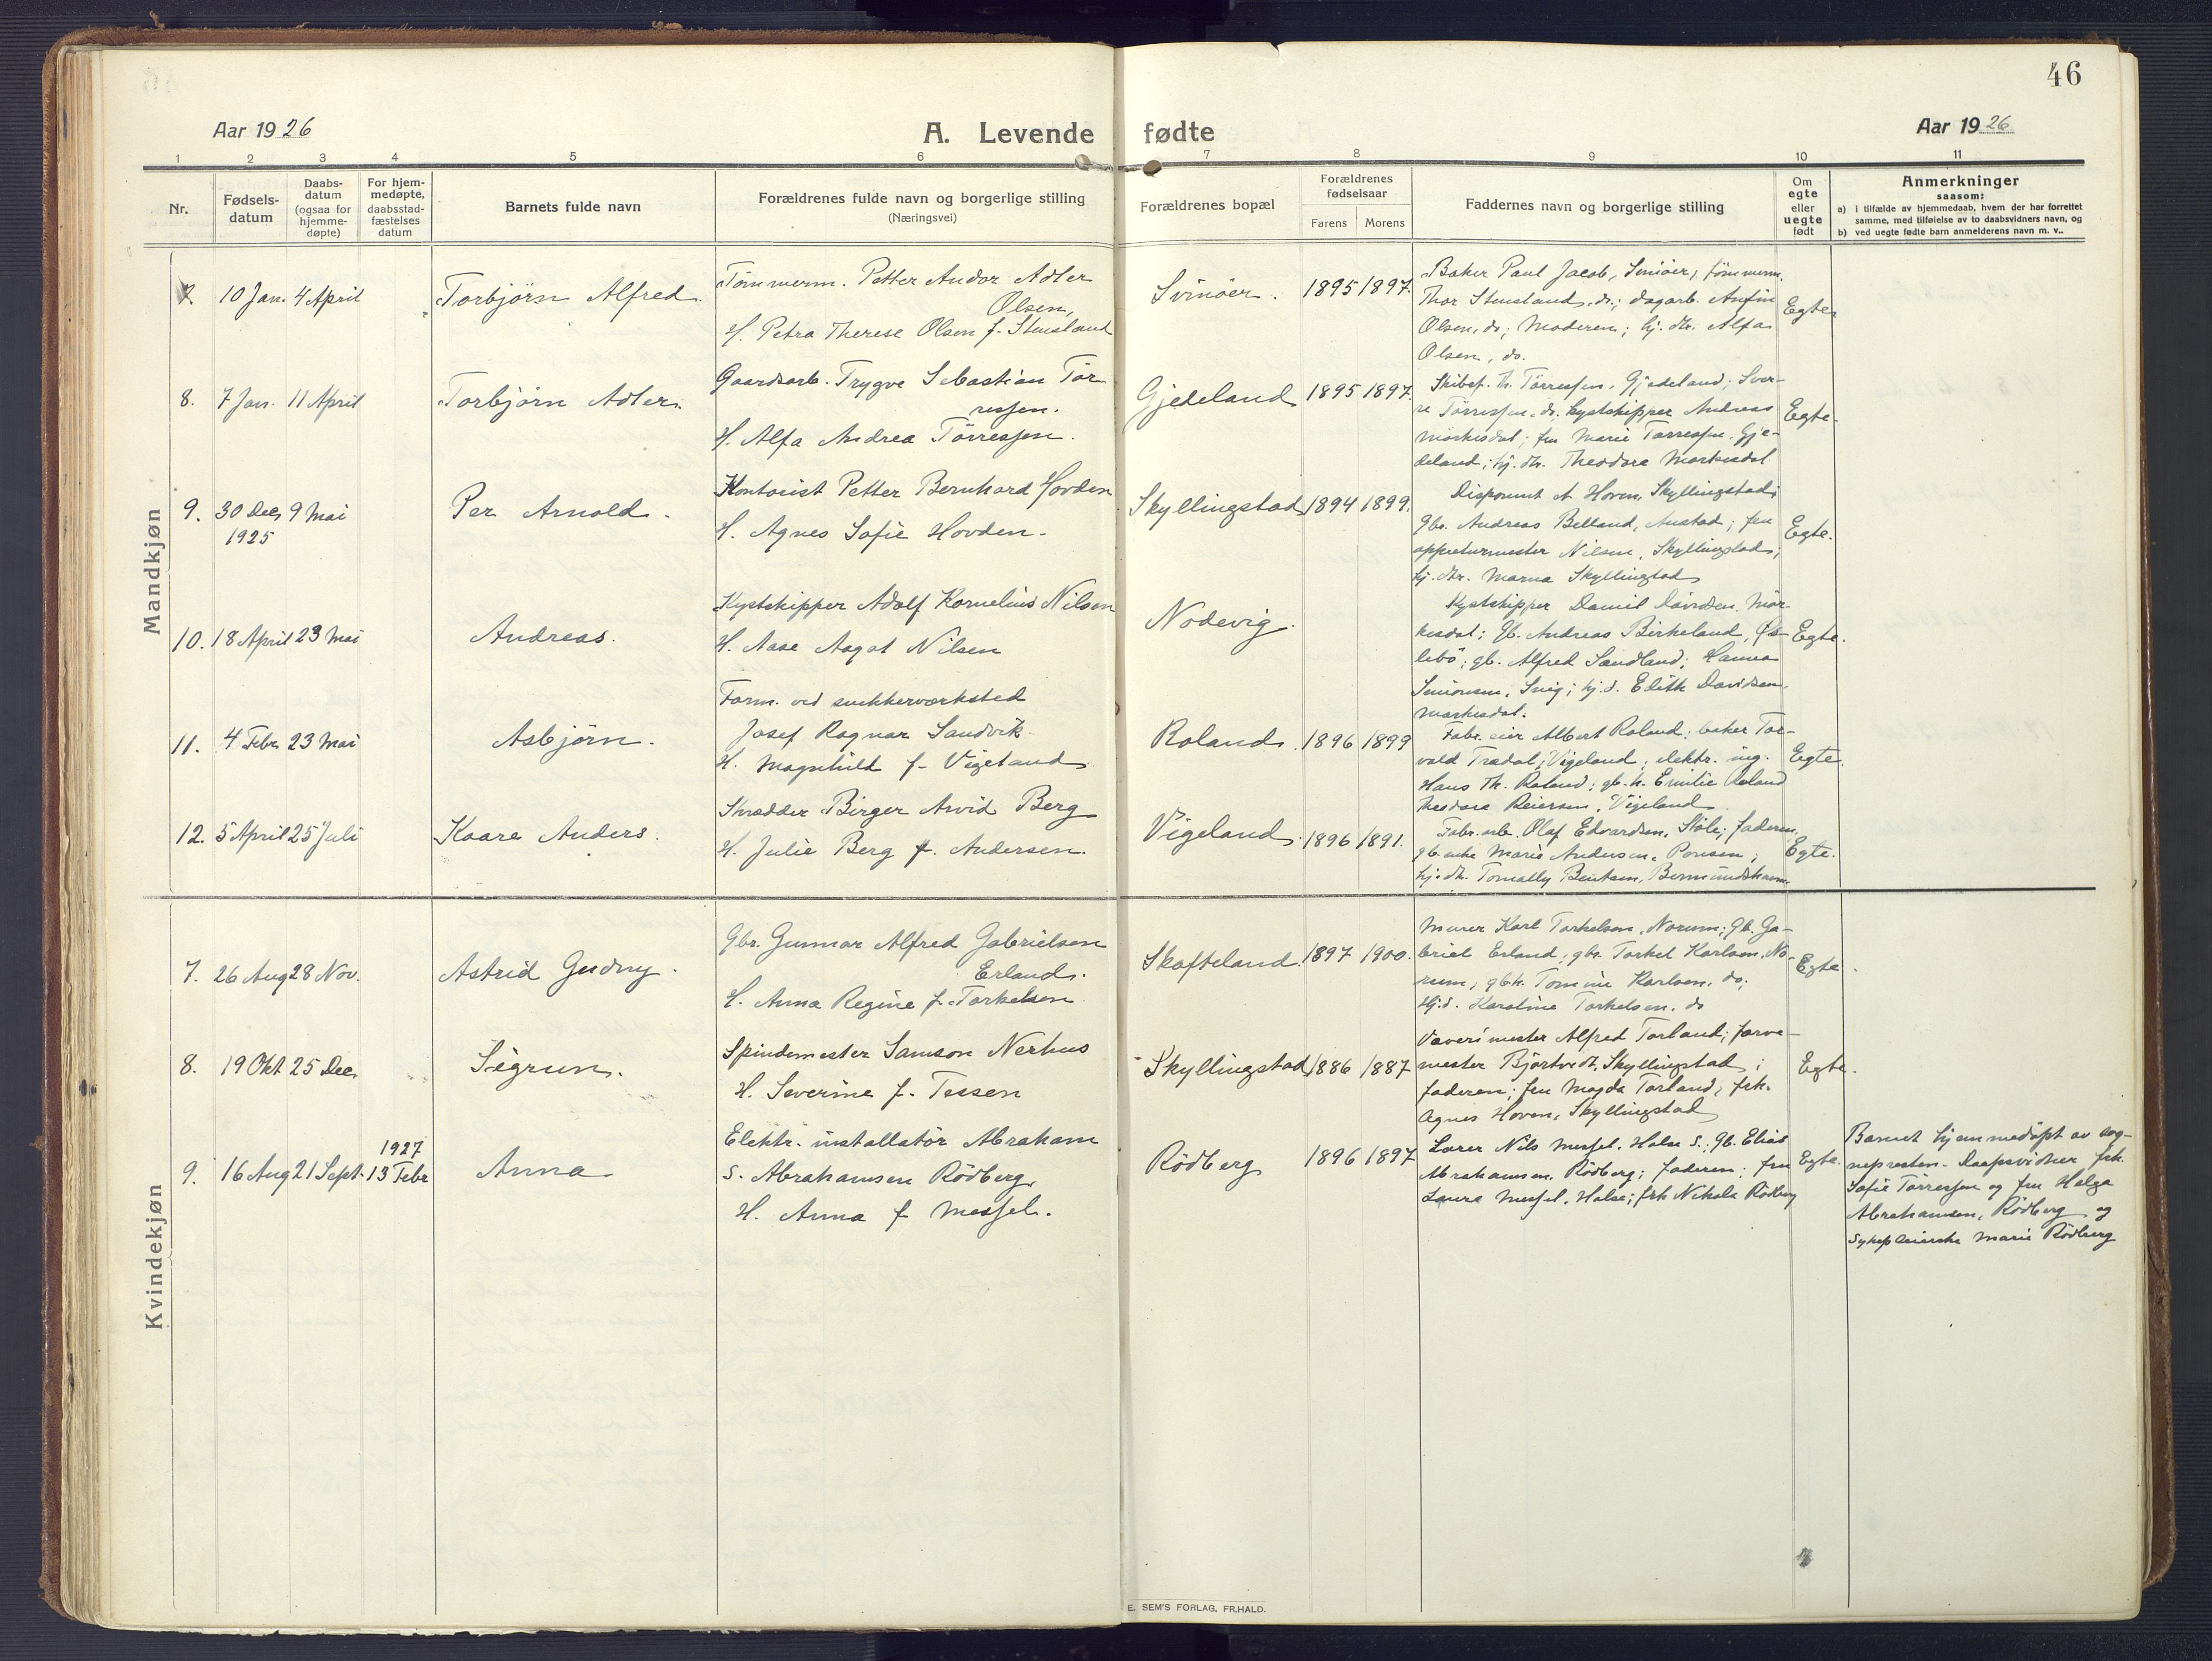 46
Aar 1926
A. Levende fødte
Aar 1926
1 2 3 4 5 6 7 8 9 10 11
Nr.
Fødsels-
datum
Daabs-
datum
(ogsaa for
hjemme-
døpte)
For hjem-
medøpte,
daabsstad-
fæstelses
datum
Barnets fulde navn
Forældrenes fulde navn og borgerlige stilling
(Næringsvei)
Forældrenes bopæl
Forældrenes
fødselsaar
Farens Morens
Faddernes navn og borgerlige stilling
Om
egte
eller
uegte
født
Anmerkninger
saasom:
a) i tilfælde av hjemmedaab, hvem der har forrettet
samme, med tilføielse av to daabsvidners navn, og
b) ved uegte fødte barn anmelderens navn m. v..
Mandkjøn
7. 10 Jan. 4 April
Torbjørn Alfred.
Tømmerm. Petter Andor Adler
Olsen,
H. Petra Therese Olsen f. Stensland
Svinöer.
1895 1897.
Baker Paul Jacob, Svinöer, tömmerm.
Thor Stensland, do; dagarb. Anfin
Olsen, do; Moderen; hj. dtr. Alfa
Olsen, do.
Egte.
8. 7 Jan. 11 April
Torbjörn Adler.
Gaardsarb. Trygve Sebastian Tör-
ressen.
H. Alfa Andrea Törressen.
Gjedeland
1895 1897.
Skibsf. Th. Törressen, Gjedeland; Sver-
re Törressen, do. kystskipper Andreas
Mörkesdal; fru Marie Törressen, Gje-
deland; hj. dtr. Theodora Mörkesdal
Egte.
9. 30 Dec. 9 Mai
1925
Per Arnold.
Kontorist Petter Bernhard Hovden
H. Agnes Sofie Hovden.
Skyllingstad
1894 1899.
Disponent A Hoven, Skyllingstad;
gbr. Andreas Belland, Austad; fru
appreturmester Nilsen, Skyllingstad;
hj. dtr. Marna Skyllingstad
Egte.
10. 18 April 23 Mai
Andreas.
Kystskipper Adolf Kornelius Nilsen
H. Aase Aagot Nilsen
Nodevig.
Kystskipper Daniel Davidsen, Mör-
kesdal; gb. Andreas Birkeland, Øs-
lebö; gb. Alfred Sandland; Hanna
Simonsen, Snig; hj. d. Edith Davidsen,
Mörkesdal.
Egte.
11. 4 Febr 23 Mai
Asbjörn.
Form. ved snekkerverksted
Josef Ragnar Sandvik
H. Magnhild f. Vigeland
Roland.
1896 1899
Fabr. eier Albert Roland; baker Tor-
vald Tredal, Vigeland; elektr. ing.
Hans Th. Roland; gb. k. Emilie Roland
Theodora Reiersen, Vigeland
Egte.
12. 5 April 25 Juli
Kaare Anders.
Skredder Birger Arvid Berg
H. Julie Berg f. Andersen.
Vigeland.
1896 1891.
Fabr. arb. Olaf Edvardsen, Stöle; faderen,
gb. enke Marie Andersen,
hj. dtr. Tomally Bentsen,
Egte.
Kvindekjøn
7. 26 Aug 28 Nov.
Astrid Gudny.
Gbr. Gunnar Alfred Gabrielsen
Erland.
H. Anna Regine f. Torkelsen
Skofteland.
1897 1900.
Murer Karl Torkelsen, Norum; Gb. Ga-
briel Erland, gbr. Torkel Karlsen, No-
rum, gbk. Tomine Karlsen, do;
Hj. d. Karoline Torkelsen, do
Egte.
8. 19 Okt 25 Dec.
Sigrun.
Spindemester Samson Nerhus
H. Severine f. Tessen
Skyllingstad
1886 1887
Væverimester Alfred Torland; farve-
mester Bjortvedt, Skyllingstad;
faderen; fru Magda Torland, frk.
Agnes Hoven, Skyllingstad
Egte.
9. 16 Aug 21 Sept. 1927
13 Febr
Anna
Elektr. installatör Abraham
S. Abrahamsen Rödberg,
H. Anna f. Messel.
Rödberg
1896 1897
Lærer Nils Messel, Halse S.; Gb. Elias
Abrahamsen, Rödberg; faderen; fru
Laura Messel, Halse; frk Nikola Rödberg
Egte.
Barnet hjemmedöpt av sog-
nepresten. Daapsvidner frk.
Sofie Törressen og fru Helga
Abrahamsen, Rödberg og
sykepleierske Marie Rödberg
E. SEM'S FORLAG, FR.HALD.